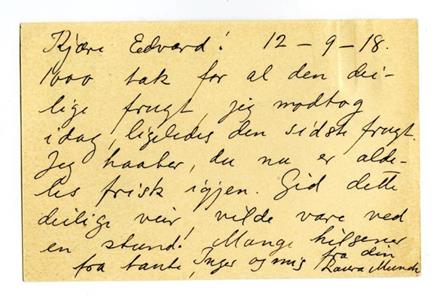 Kjære Edvard! 12 – 9 – 18.
1000 tak for al den dei-
lige frugt, jeg modtog
idag, ligeledes den sidste frugt.
Jeg haaber, du nu er alde-
les frisk igjen. Gid dette
deilige veir vilde vare ved
en stund! Mange hilsener
fra tante, Inger og mig fra din
Laura Munch